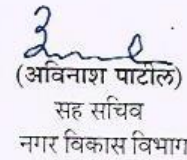 (अविनाश पाटील)
सह सचिव
नगर विकास विभाग